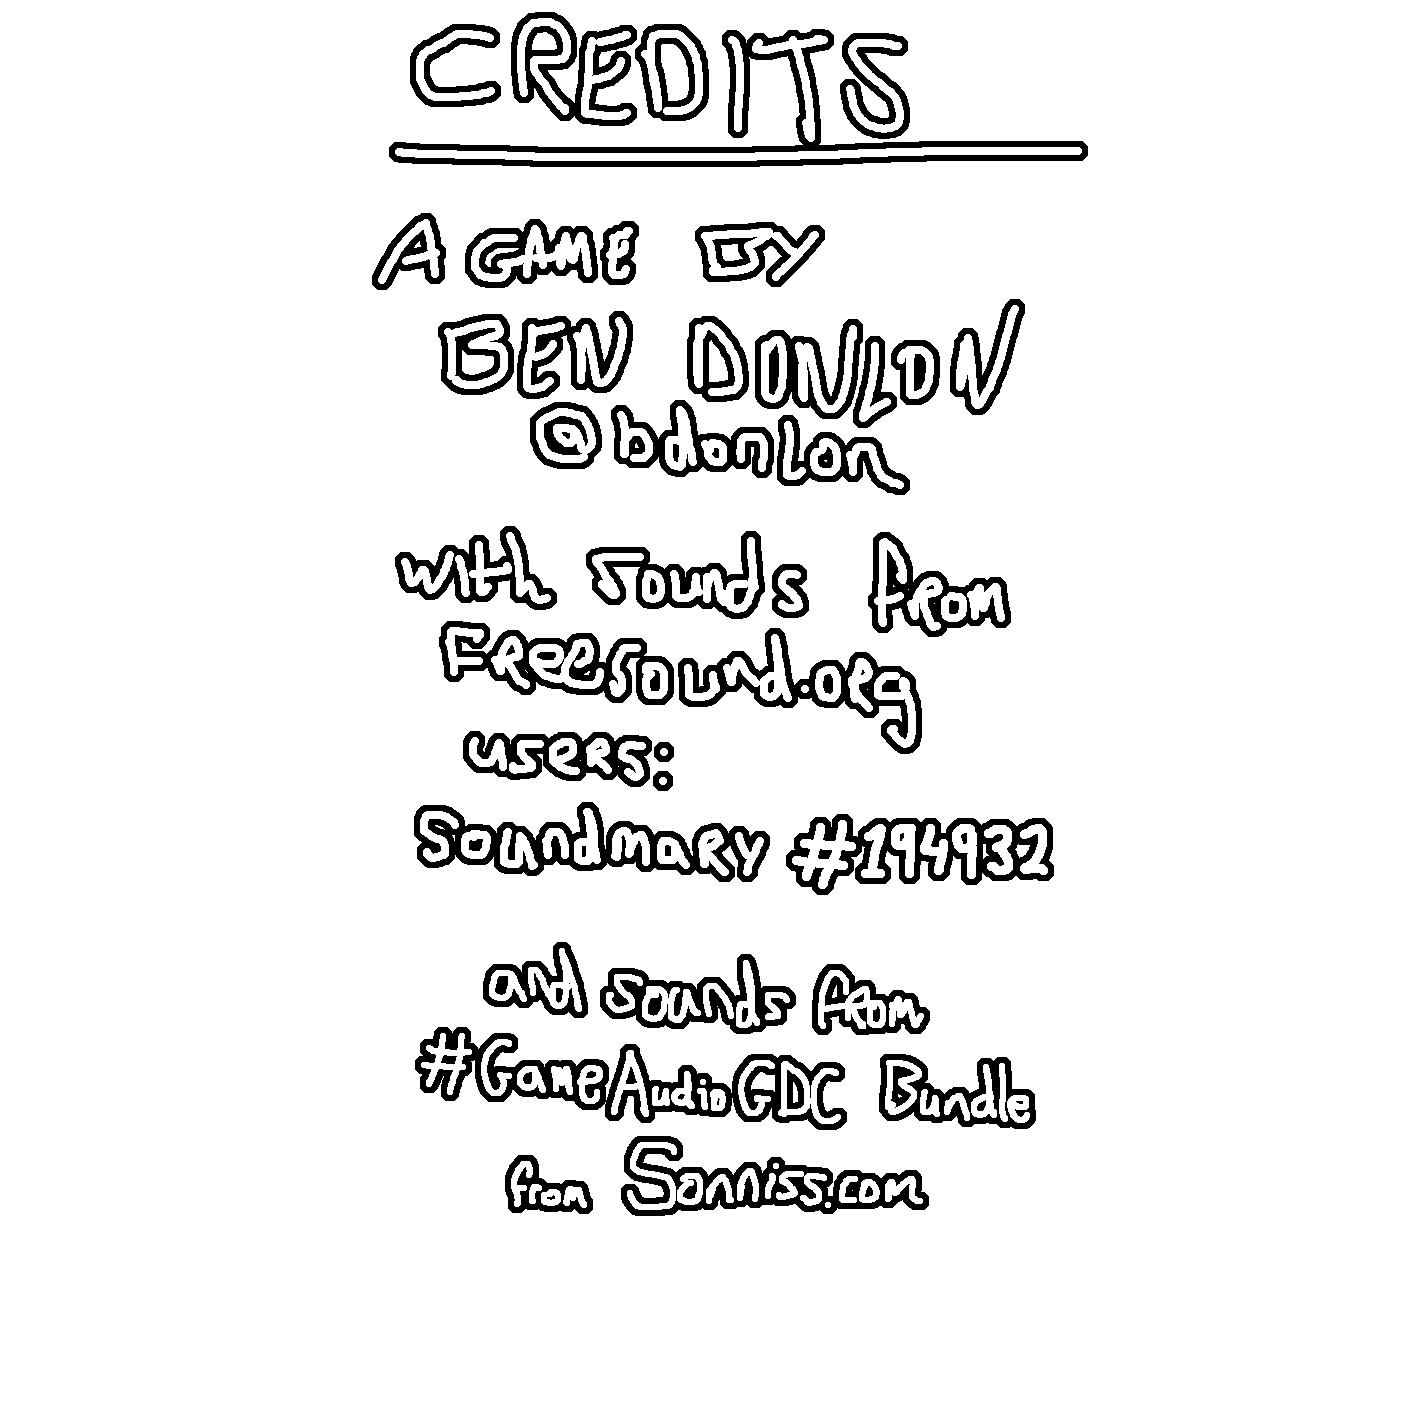 CREDITS
A GAME BY
BEN DONLON
@bdonlon
with sounds from
FReesound.org
users:
Soundmary #194932
and sounds from
#GameAudioGDC Bundle
from Sonniss.com